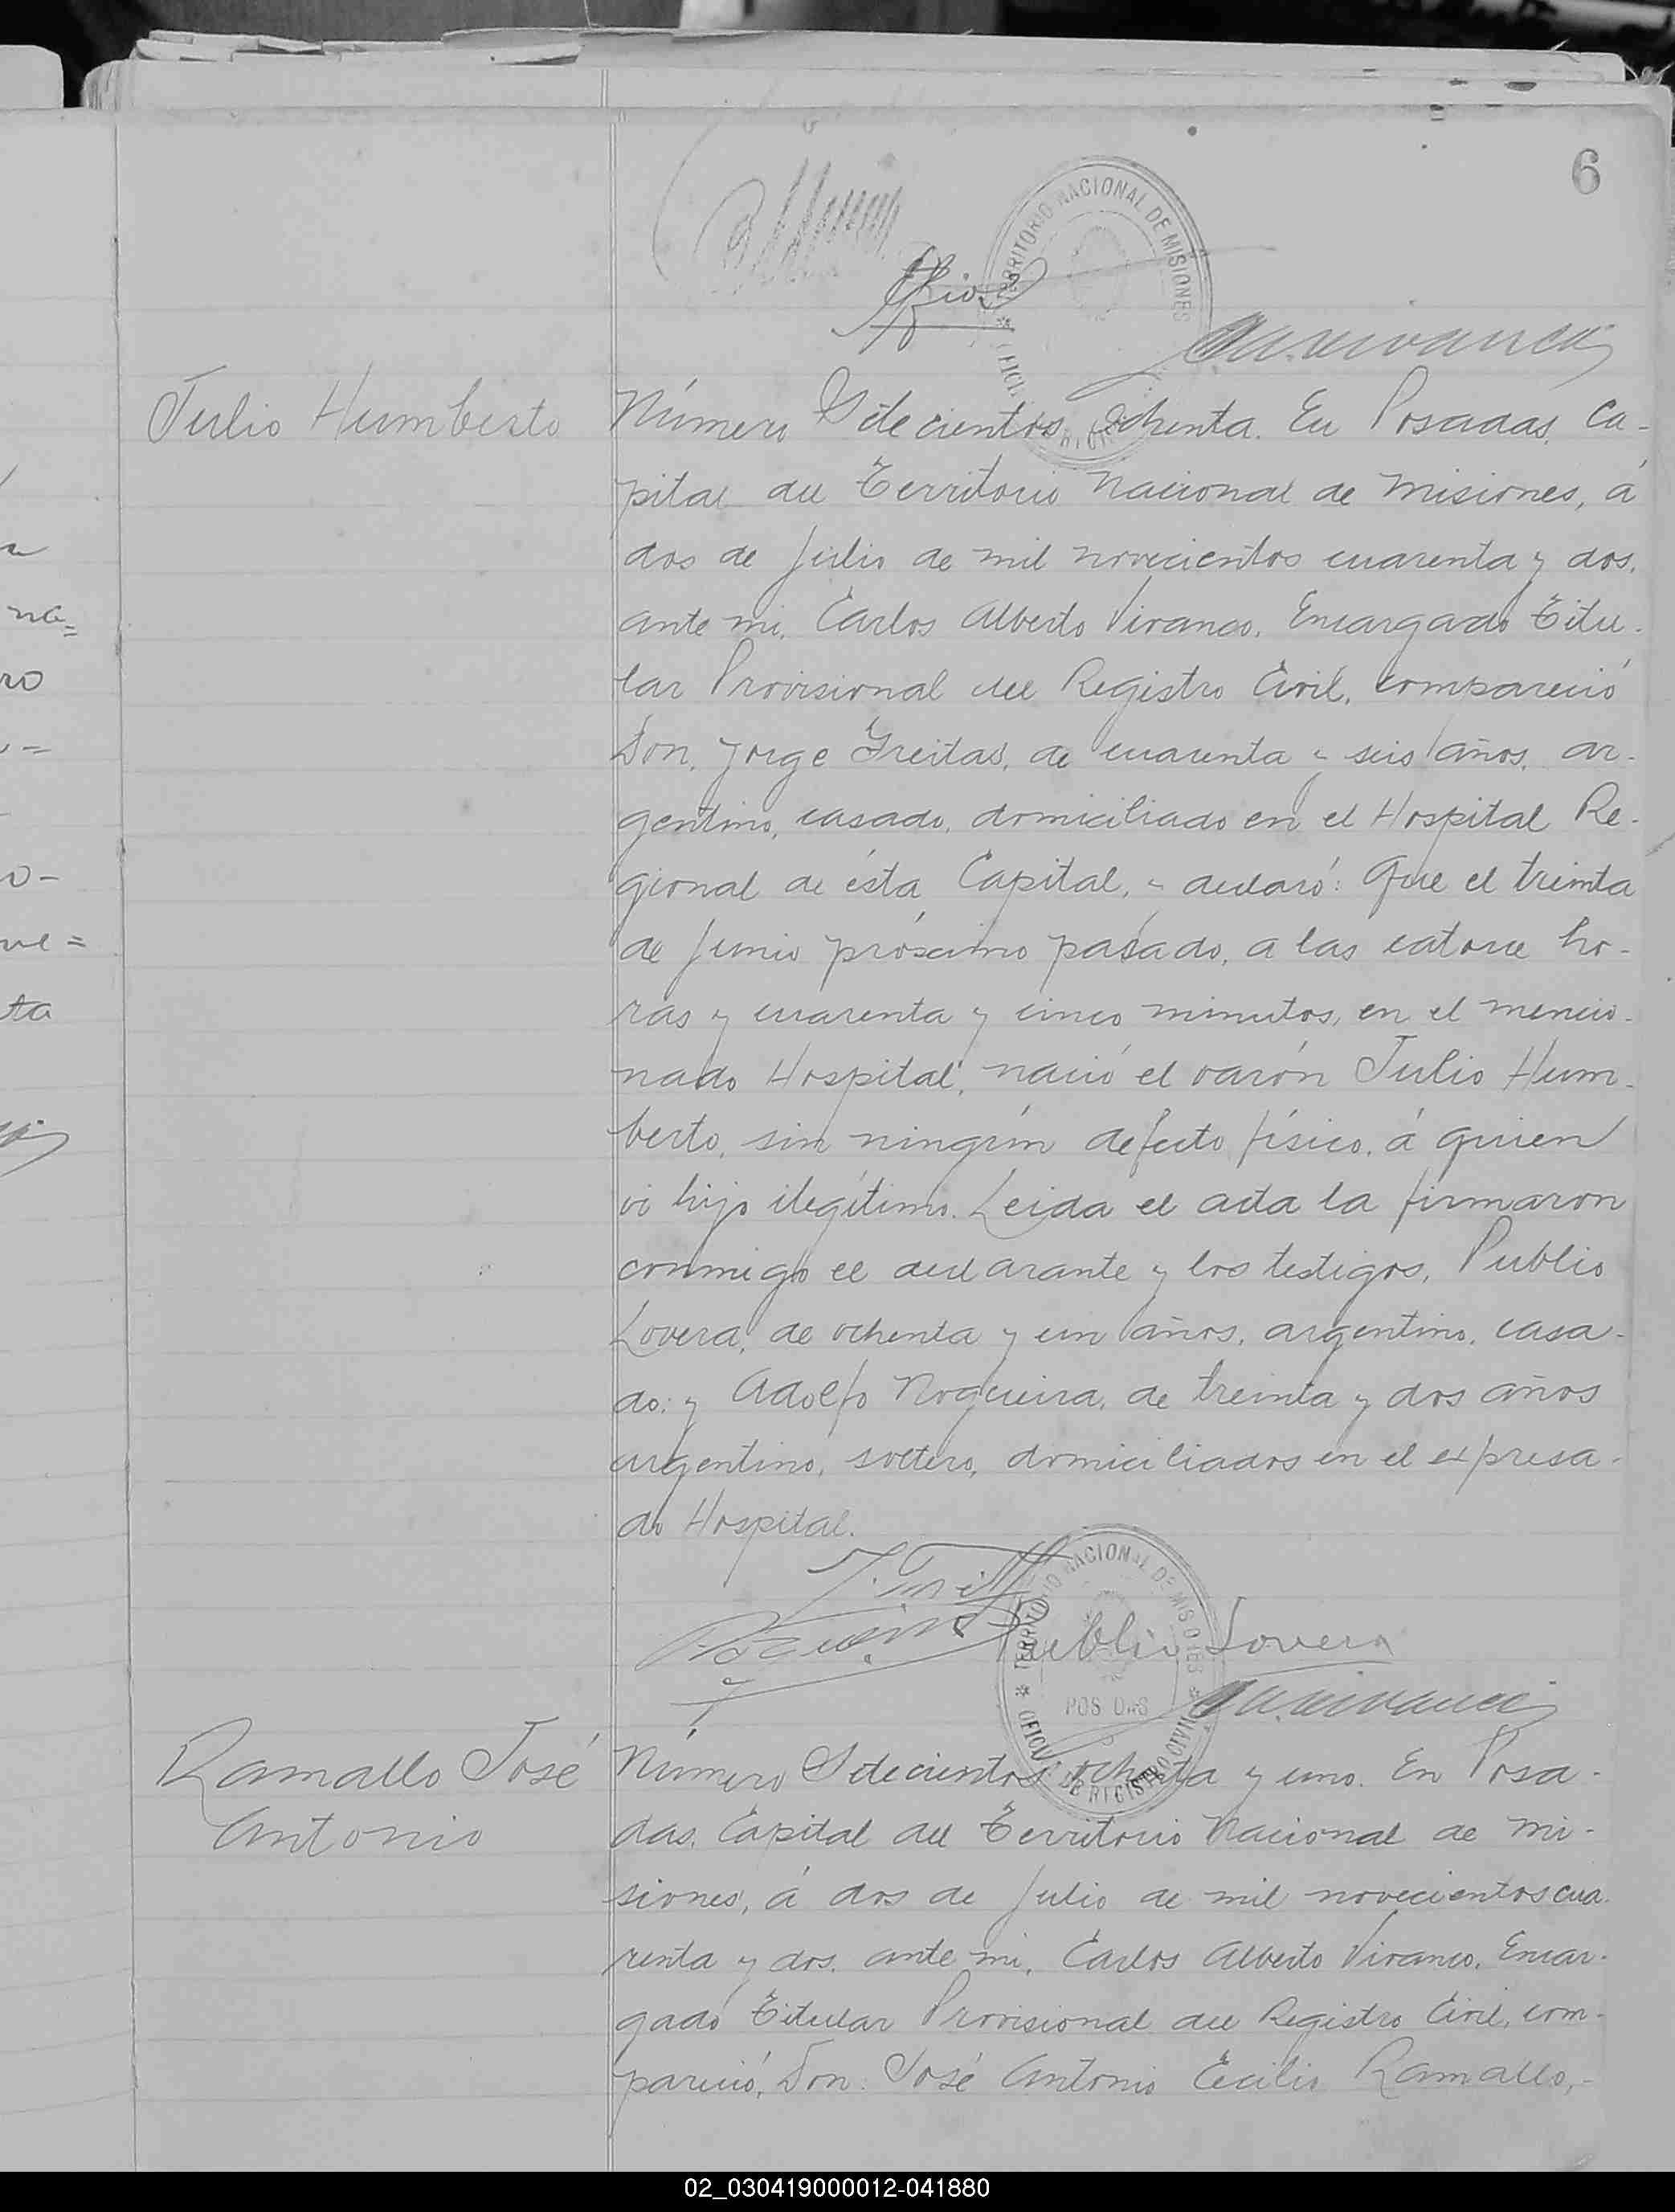 6
TERRITORIO NACIONAL DE MISIONES
Julio Humberto
Número Setecientos ochenta. En Posadas, Ca-
pital del Territorio Nacional de Misiones, á
dos de Julio de mil novecientos cuarenta y dos,
ante mi, Carlos Alberto Vivanco, Encargado Titu-
lar Provisional del Registro Civil, compareció
Don, Jorge Freitas, de cuarenta y seis años, ar-
gentino, casado, domiciliado en el Hospital Re-
gional de ésta Capital, y declaró: Que el treinta
de Junio próximo pasado, a las catorce ho-
ras y cuarenta y cinco minutos, en el mencio-
nado Hospital, nació el varón Julio Hum-
berto, sin ningún defecto físico, á quien
vi hijo ilegítimo. Leida el acta la firmaron
conmigo el declarante y los testigos, Publio
Lovera, de ochenta y un años, argentino, casa-
do: y Adolfo Nogueira, de treinta y dos años
argentino, soltero, domiciliados en el expresa-
do Hospital.
Publio Lovera
TERRITORIO NACIONAL DE MISIONES
POSADAS
OFICINA DE REGISTRO CIVIL
Ramallo José
Antonio
Número Setecientos ochenta y uno. En Posa-
das, Capital del Territorio Nacional de Mi-
siones, á dos de Julio de mil novecientos cua-
renta y dos, ante mi, Carlos Alberto Vivanco, Encar-
gado Titular Provisional del Registro Civil, com-
pareció, Don: José Antonio Cecilio Ramallo,-
02_030419000012-041880